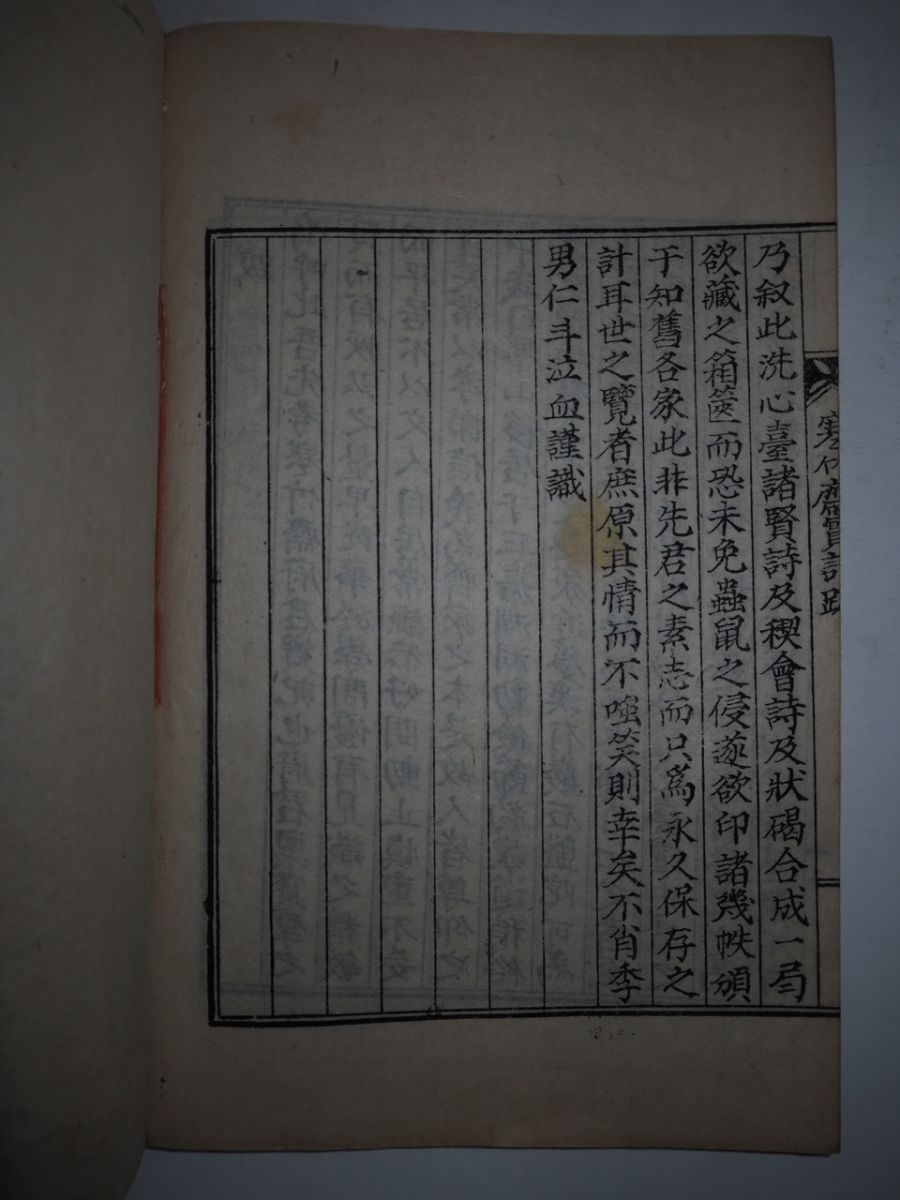 乃叙此洗心臺諸賢詩及稧會詩及狀碣合成一局
欲藏之箱篋而恐未免蟲鼠之侵遂欲印諸幾帙頒
于知舊各家此非先君之素志而只爲永久保存之
計耳世之覽者庶原其情而不嗤笑則幸矣不肖季
男仁斗泣血謹識